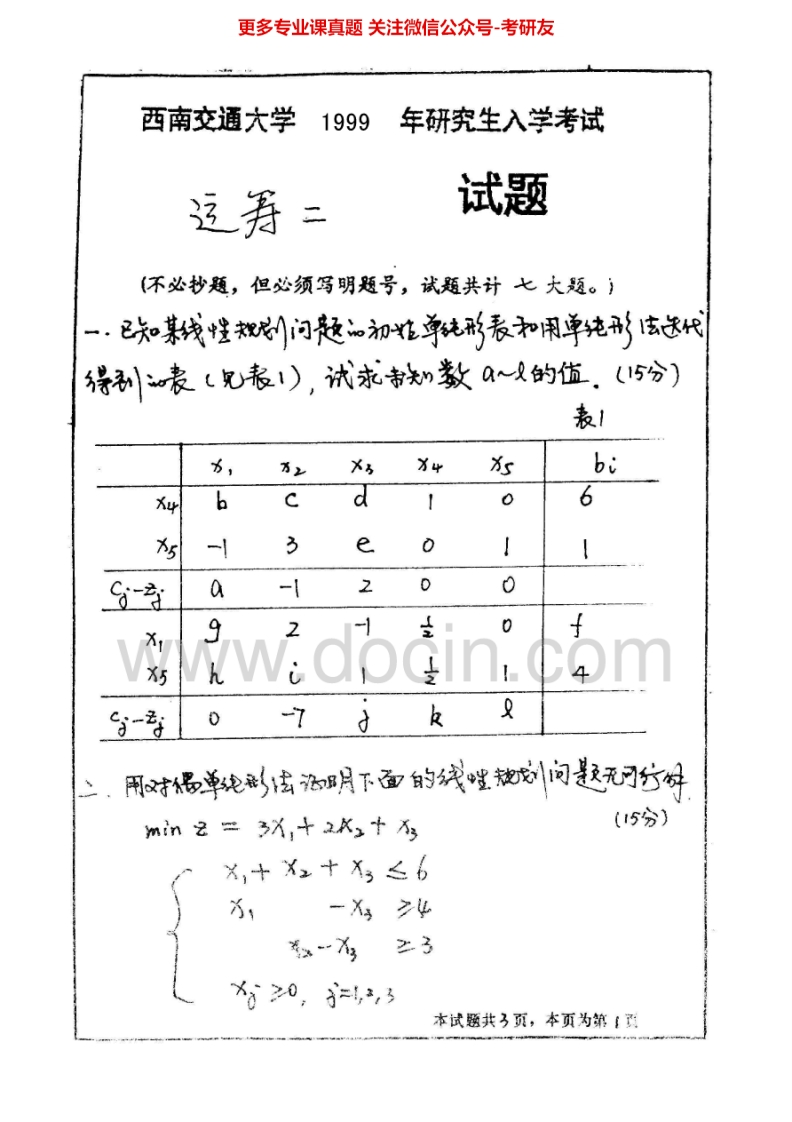 更多专业课真题 关注微信公众号-考研友
西南交通大学 1999 年研究生入学考试
运筹二 试题
(不必抄题，但必须写明题号，试题共计 七 大题。)
一. 已知某线性规划问题的初始单纯形表和用单纯形法迭代
得到的表（见表1），试求未知数 a~l 的值. (15分)
表1
x₁ x₂ x₃ x₄ x₅ bi
x₄ b c d 1 0 6
x₅ -1 3 e 0 1 1
cⱼ-zⱼ a -1 2 0 0
x₁ g 2 -1 ½ 0 f
x₅ h i 1 ½ 1 4
cⱼ-zⱼ 0 -7 j k l
www.docin.com
二. 用对偶单纯形法证明下面的线性规划问题无可行解.
(15分)
min z = 3x₁ + 2x₂ + x₃
x₁ + x₂ + x₃ ≤ 6
x₁ - x₃ ≥ 4
x₂ - x₃ ≥ 3
xⱼ ≥ 0, j=1,2,3
本试题共3页，本页为第1页